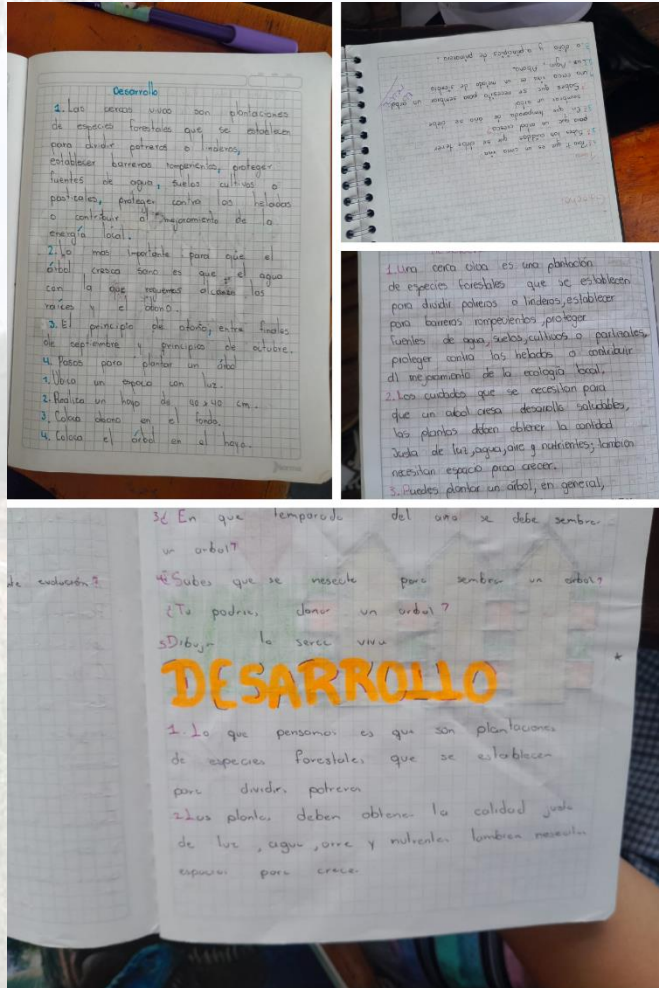 Desarrollo
1. Las cercas vivas son plantaciones
de especies forestales que se establecen
para dividir potreros o linderos,
establecer barreras rompevientos, proteger
fuentes de agua, suelos cultivos o
pasticales, proteger contra las heladas
o contribuir al mejoramiento de la
energía local.
2. Lo mas importante para que el
árbol cresca sano es que el agua
con la que requemos alcance las
raíces y el abono.
3. El principio de otoño, entre finales
de septiembre y principio de octubre.
4. Pasos para plantar un árbol
1. Ubica un espaco con luz.
2. Realica un hoyo de 40x40 cm.
3. Coloca abono en el fondo.
4. Coloca el árbol en el hoyo.
una cerca viva es un metodo de siembra
Luz, Agua, Abono.
1. Una cerca viva es una plantación
de especies forestales que se establecen
para dividir potreros o linderos, establecer
para barreras rompevientos, proteger
fuentes de agua, suelos, cultivos o partizales,
proteger contra las heladas o contribuir
al mejoramiento de la ecología local.
2. Los cuidados que se necesitan para
que un árbol cresa desarollo saludables,
las plantas deben obtener la cantidad
justa de luz, agua, aire y nutrientes; tambien
necesitan espacio praa crecer.
3. Puedes plantar un árbol, en general,
3¿ En que temporada del ano se debe sembrar
un arbol?
de evolución?
4¿Sabes que se nesecita para sembar un arbol?
¿Tu podrias donar un arbol?
5Dibujar la serca viva
DESARROLLO
1. Lo que pensamos es que son plantaciones
de especies forestales que se establecen
para dividir potreros
2Las plantas deben obtener la calidad justa
de luz, agua, aire y nutrientes tambien nesecitan
espacios para crecer